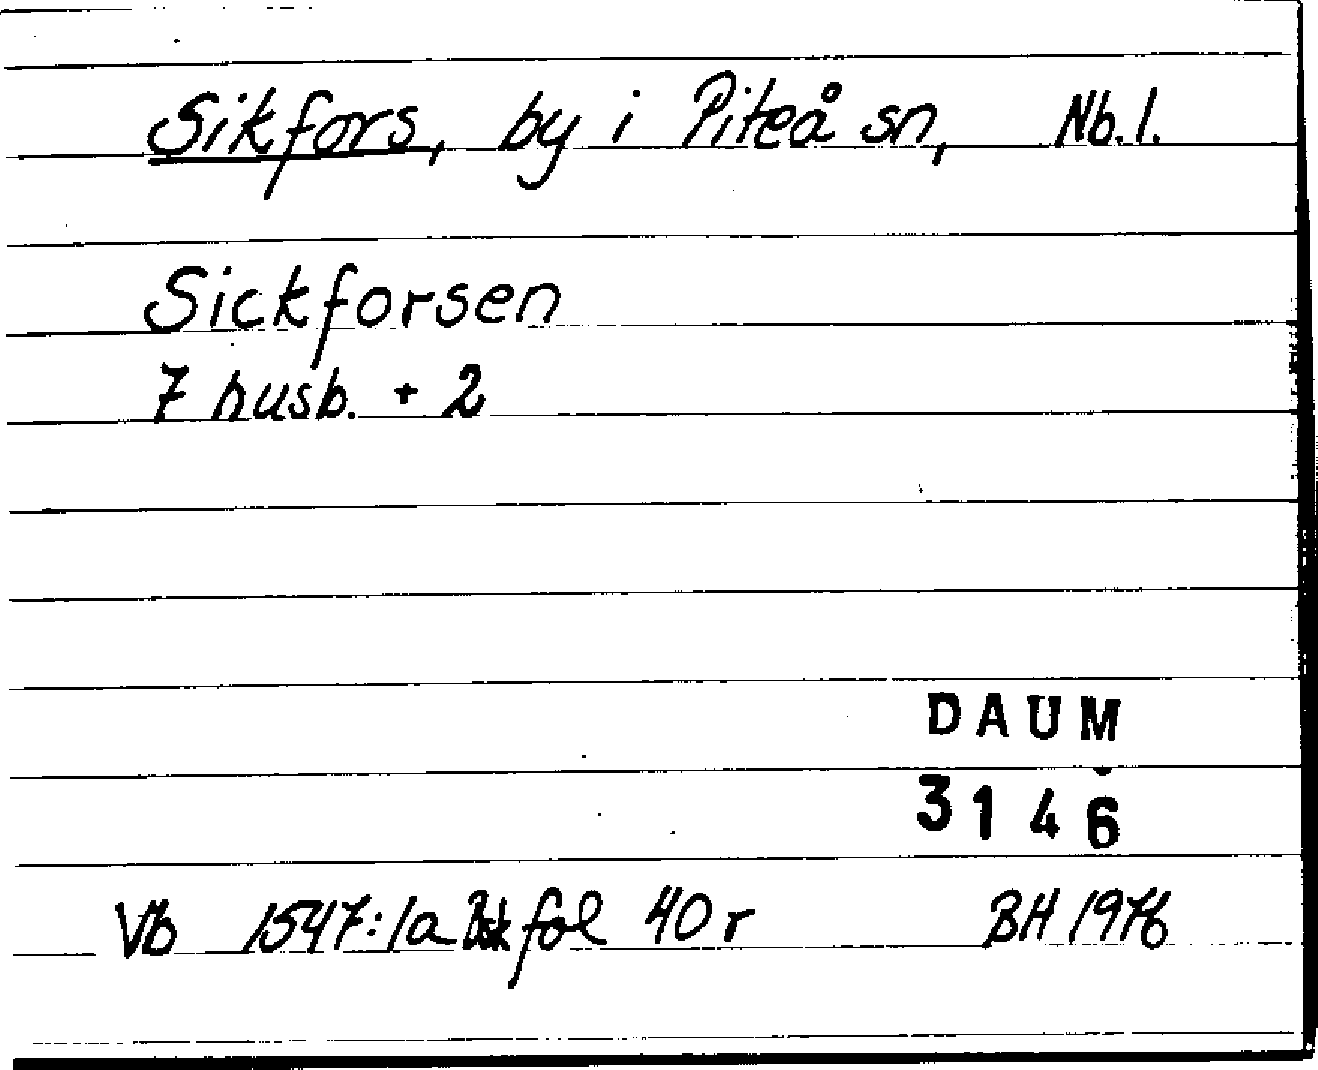 Sikfors, by i Piteå sn, Nb.l.
Sickforsen
7 husb. + 2
DAUM
3146
Vb 1547:1a Bsk fol 40 r BH 1976